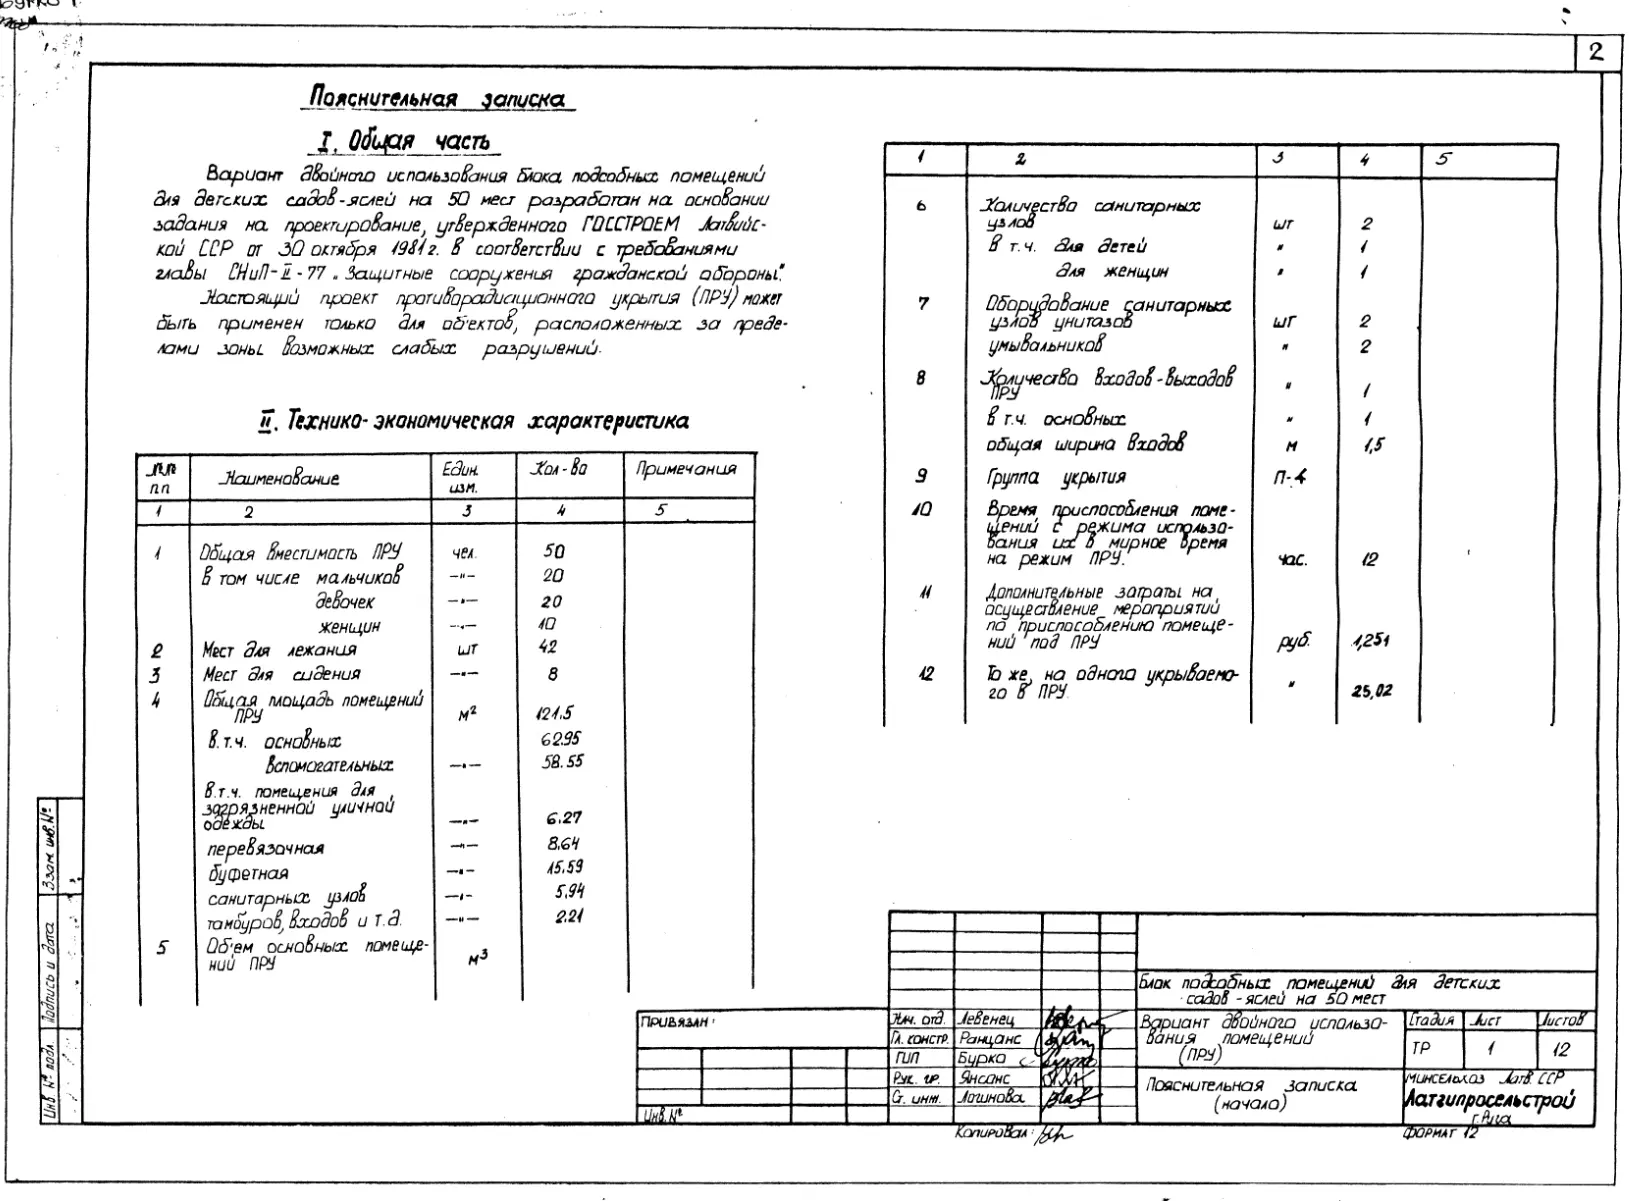 2
Пояснительная записка
I. Общая часть
Вариант двойного использования блока подсобных помещений
для детских садов-яслей на 50 мест разработан на основании
задания на проектирование, утвержденного ГОССТРОЕМ Латвийс-
кой ССР от 30 октября 1981г. в соответствии с требованиями
главы СНиП-II-77 „Защитные сооружения гражданской обороны".
Настоящий проект противорадиационного укрытия (ПРУ) может
быть применен только для об'ектов, расположенных за преде-
лами зоны возможных слабых разрушений.
II. Технико-экономическая характеристика
№№ пп Наименование Един. изм. Кол-во Примечания
1 2 3 4 5
1 Общая вместимость ПРУ чел. 50
в том числе мальчиков —"— 20
девочек —"— 20
женщин —"— 10
2 Мест для лежания шт 42
3 Мест для сидения —"— 8
4 Общая площадь помещений
ПРУ м² 121.5
в.т.ч. основных 62.95
вспомогательных —"— 58.55
в.т.ч. помещения для
загрязненной уличной
одежды —"— 6.27
перевязочная —"— 8.64
буфетная —"— 15.59
санитарных узлов —"— 5.94
тамбуров, входов и т.д. —"— 2.21
5 Об'ем основных помеще-
ний ПРУ м³
1 2 3 4 5
6 Количество санитарных
узлов шт 2
в т.ч. для детей " 1
для женщин " 1
7 Оборудование санитарных
узлов унитазов шт 2
умывальников " 2
8 Количество входов-выходов
ПРУ " 1
в т.ч. основных " 1
общая ширина входов м 1,5
9 Группа укрытия П-4
10 Время приспособления поме-
щений с режима использо-
вания их в мирное время
на режим ПРУ. час. 12
11 Дополнительные затраты на
осуществление мероприятий
по приспособлению помеще-
ний под ПРУ руб. 1,251
12 То же, на одного укрываемо-
го в ПРУ. " 25,02
Взам. инв.№
Подпись и дата
Инв. № подл.
Привязан:
Инв.№
Нач. отд. Левенец
Гл. констр. Ранцанс
ГИП Бурко
Рук. гр. Янсонс
Ст. инж. Логинова
Блок подсобных помещений для детских
садов-яслей на 50 мест
Вариант двойного использо-
вания помещений
(ПРУ)
Стадия Лист Листов
ТР 1 12
Пояснительная записка
(начало)
Минсельхоз Латв. ССР
Латгипросельстрой
г.Рига
Копировал:
формат 12